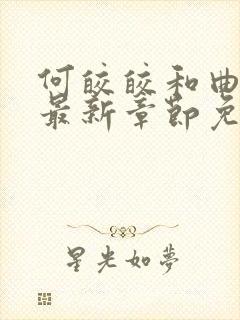 何皎皎和曲
最新章節免
星光如夢